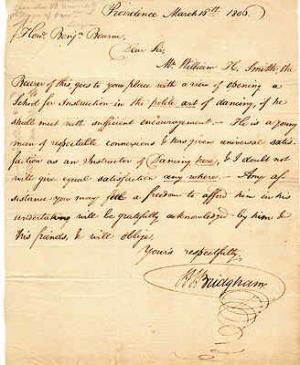 Providence March 15th 1806
Honl. Benjn. Bourne
Dear Sir,
Mr. William H. Smith, the
Bearer of this goes to your place with a view of opening a
School for Instruction in the polite art of dancing, if he
shall meet with sufficient encouragement. - He is a young
man of respectable connexions & has given universal satis-
faction as an Instructor of Dancing here, & I doubt not
will give equal satisfaction any where. - Any as-
sistance you may feel a freedom to afford him in his
undertaking will be gratefully acknowledged by him &
his friends, & will oblige.
Yours respectfully,
Bridgham